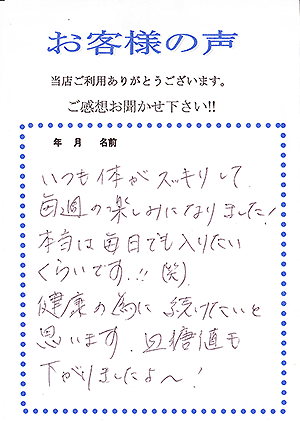 お客様の声
当店ご利用ありがとうございます。
ご感想お聞かせ下さい!!
年 月 名前
いつも体がスッキリして
毎週の楽しみになりました!
本当は毎日でも入りたい
くらいです.!! (笑)
健康の為に続けたいと
思います. 血糖値も
下がりましたよ〜!